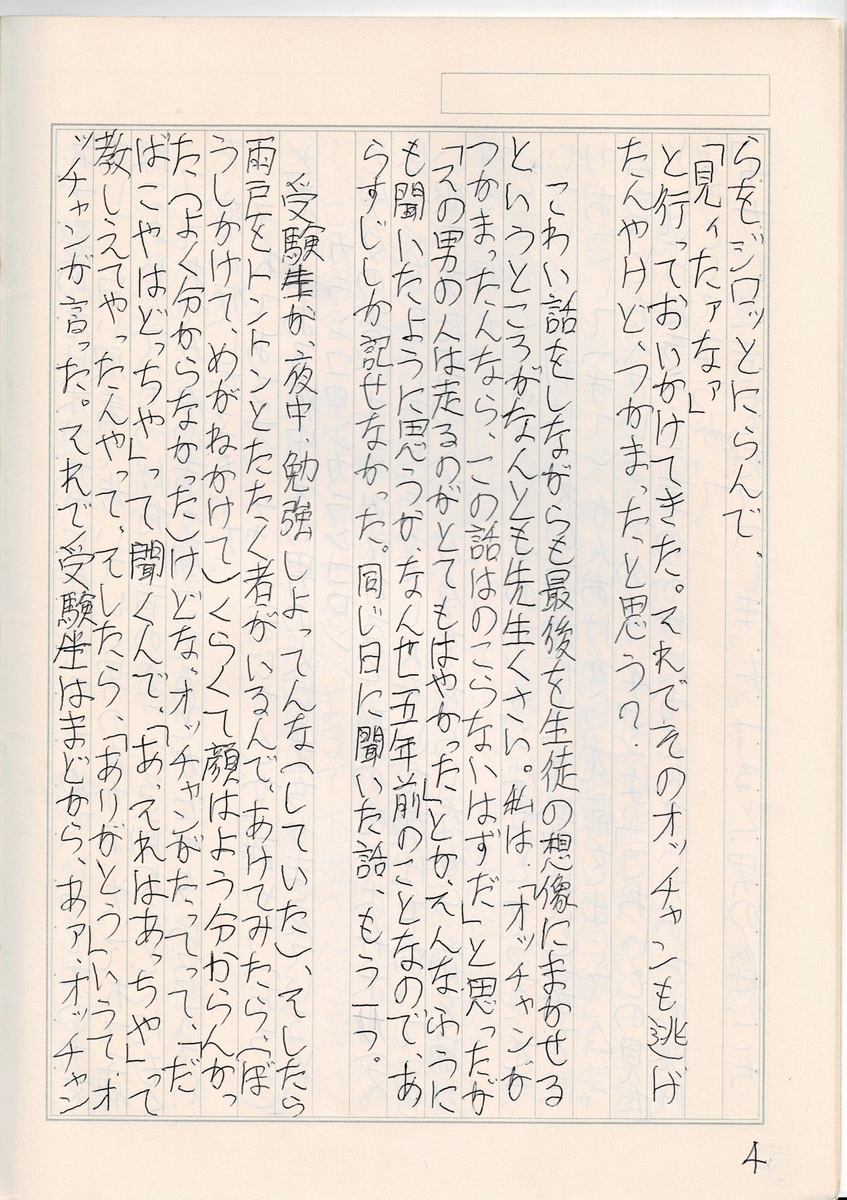 らをジロッとにらんで、
「見ィたァなァ」
と行っておいかけてきた。それでそのオッチャンも逃げ
たんやけど、つかまった、と思う?
こわい話をしながらも最後を生徒の想像にまかせる
というところがなんとも先生くさい。私は、「オッチャンが
つかまったんなら、この話はのこらないはずだ」と思ったが
「その男の人は走るのがとてもはやかった」とか、そんなふうに
も聞いたように思うが、なんせ五年前のことなので、あ
らすじしか記せなかった。同じ日に聞いた話、もう一つ。
受験生が、夜中、勉強しよってんな(していた)、そしたら
雨戸をトントンとたたく者がいるんで、あけてみたら、(ぼ
うしかけて、めがねかけて)くらくて顔はよう分からんかっ
た(よく分からなかった)けどな、オッチャンがたってって、「だ
ばこやはどっちや」って聞くんで、「あ、それはあっちや」って
教しえてやったんやって、そしたら、「ありがとう」いうて、オ
ッチャンが言った。それで、受験生はまどから、あァ、オッチャン
4